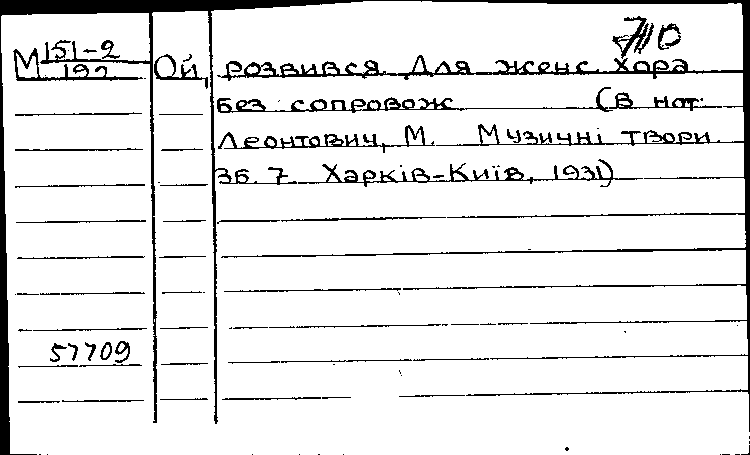 М 151-2 Ой, розвився Для женс. хора
192 без сопровож. (В нот:
Леонтович, М. Музичні твори.
Зб. 7 Харків-Київ, 1931)
57709